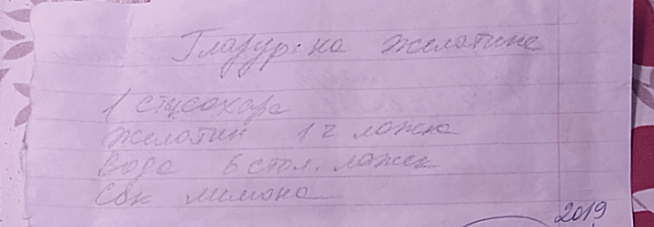 Глазурь на желатине
1 ст. сахара
желатин 1 ч ложка
Вода 6 стол. ложек
Сок лимона
2019